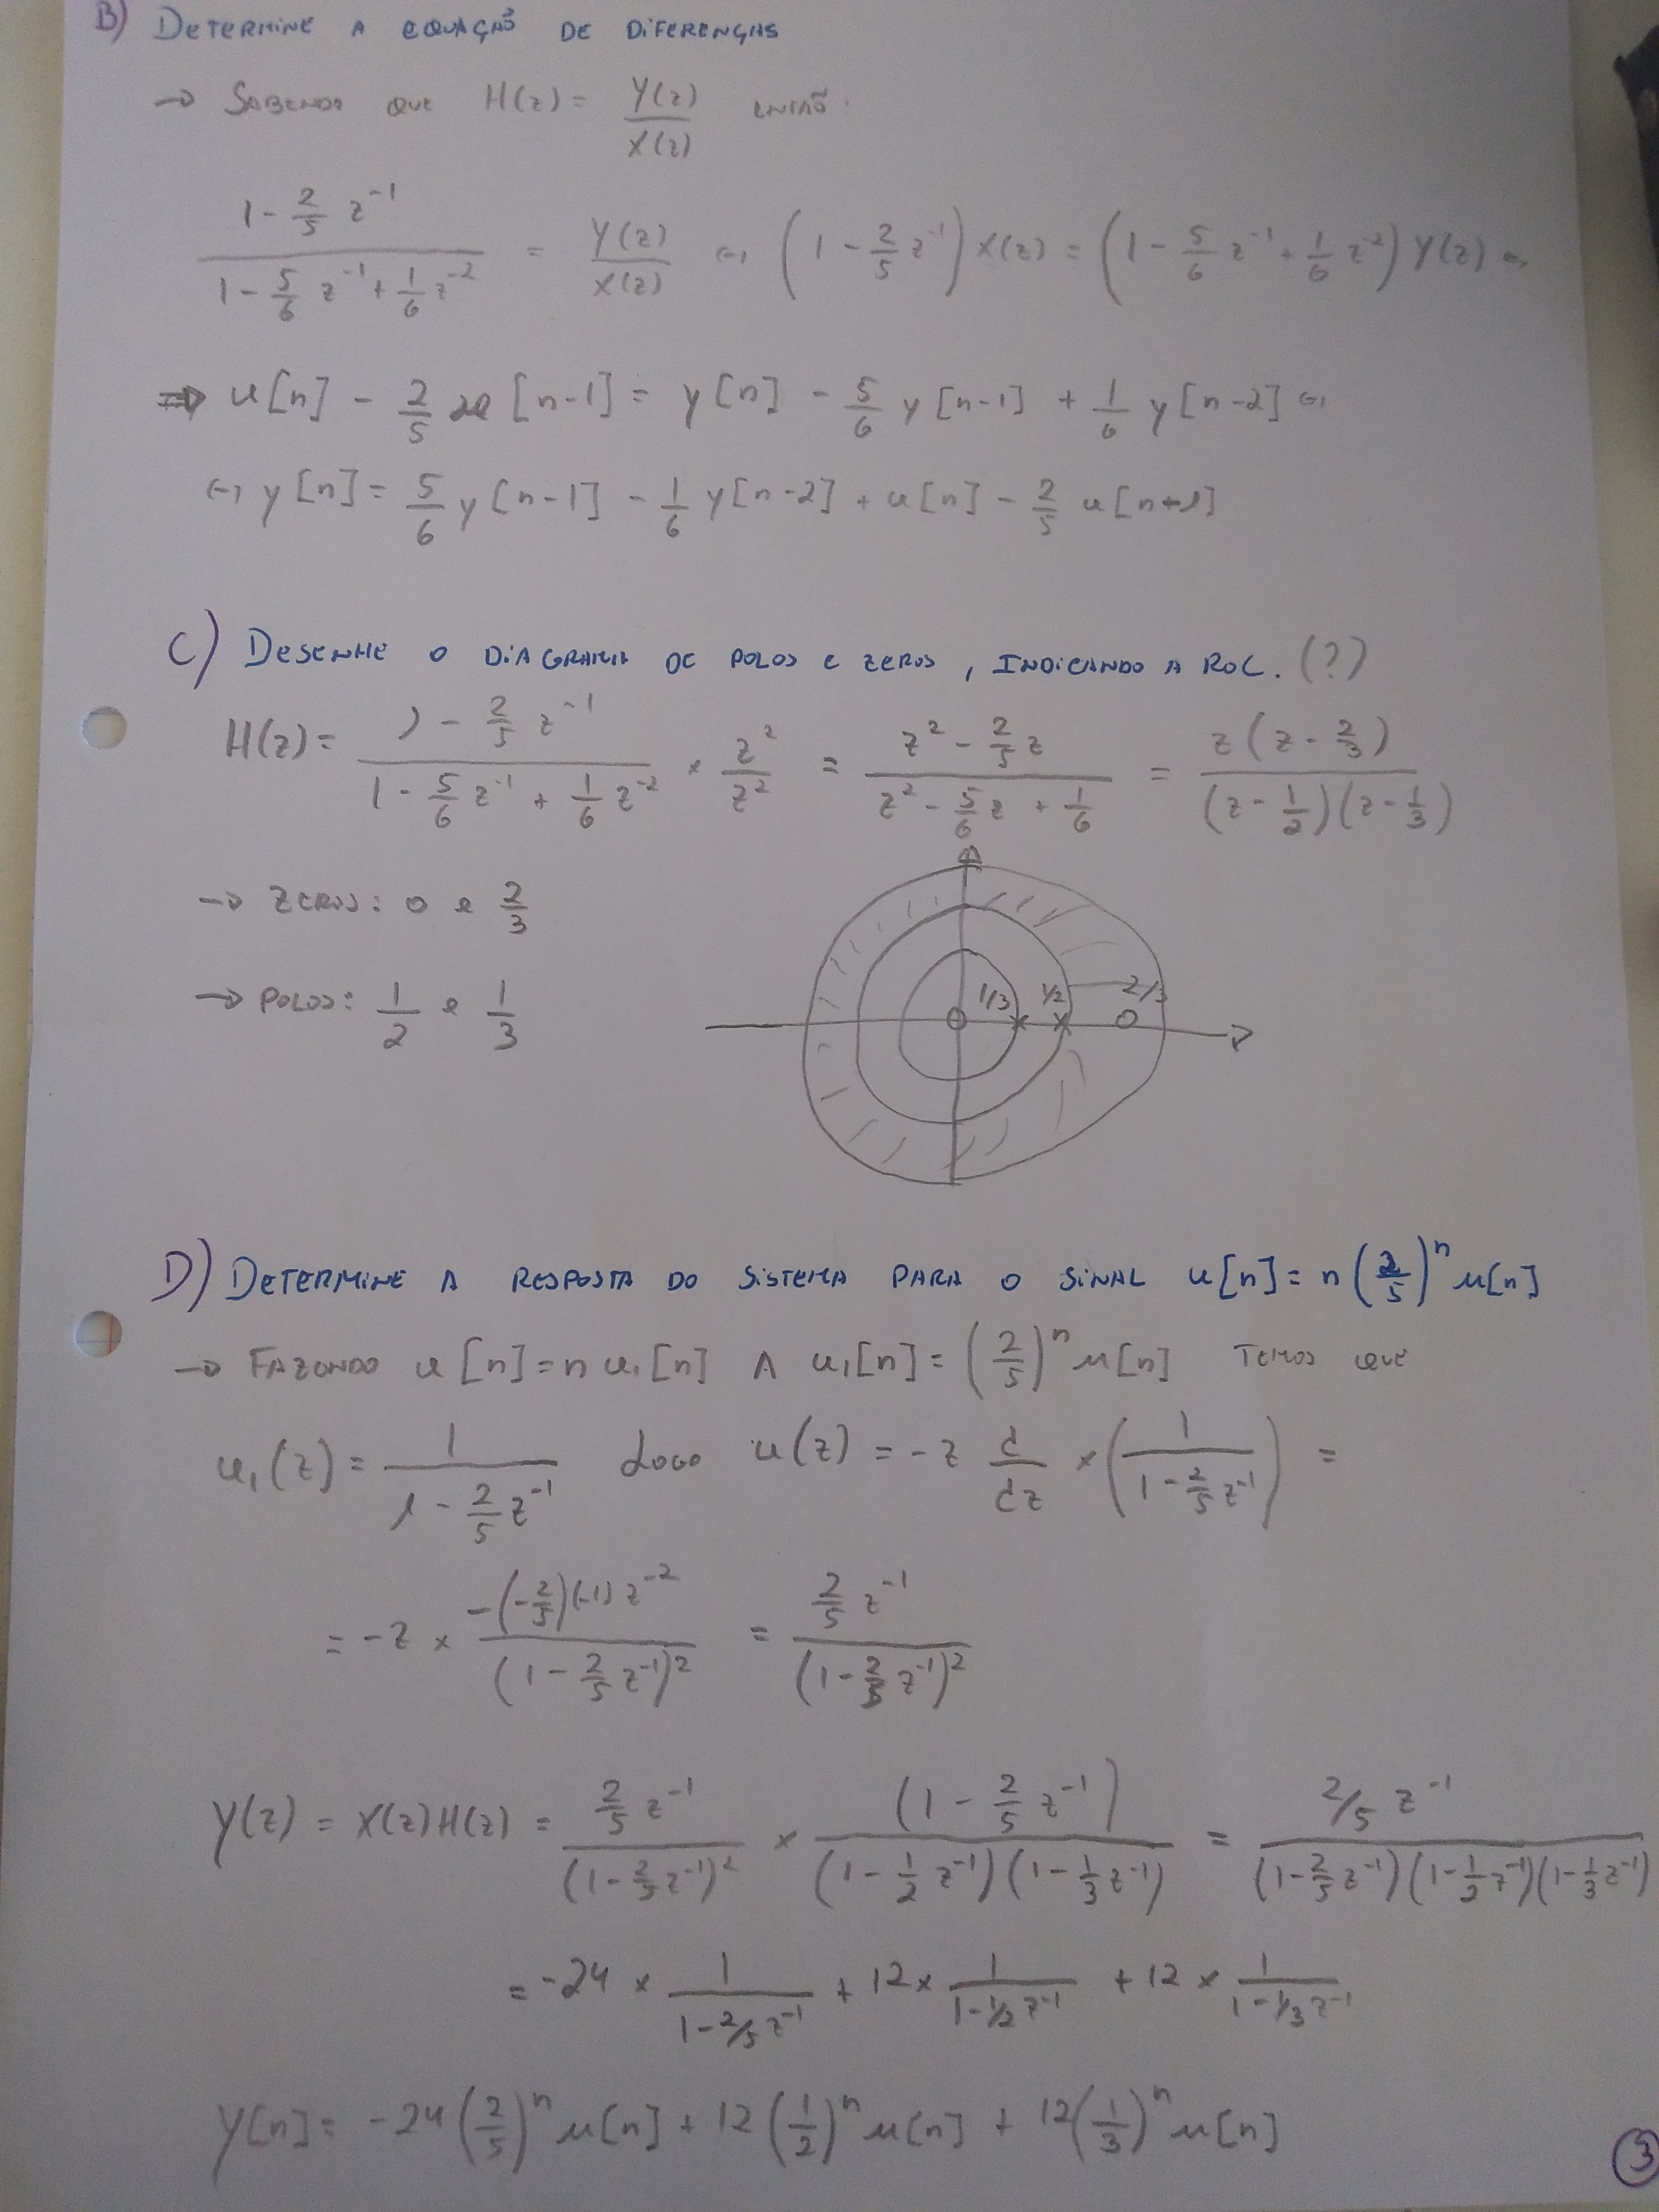 B) DETERMINE A EQUAÇÃO DE DIFERENÇAS
→ SABENDO QUE H(z) = Y(z)/X(z) ENTÃO:
(1 - 2/5 z^-1)/(1 - 5/6 z^-1 + 1/6 z^-2) = Y(z)/X(z) ⇔ (1 - 2/5 z^-1) X(z) = (1 - 5/6 z^-1 + 1/6 z^-2) Y(z) ⇔
⇒ x[n] - 2/5 x[n-1] = y[n] - 5/6 y[n-1] + 1/6 y[n-2] ⇔
⇔ y[n] = 5/6 y[n-1] - 1/6 y[n-2] + x[n] - 2/5 x[n+1]
C) DESENHE O DIAGRAMA DE POLOS E ZEROS, INDICANDO A ROC. (?)
H(z) = (1 - 2/5 z^-1)/(1 - 5/6 z^-1 + 1/6 z^-2) × z^2/z^2 = (z^2 - 2/5 z)/(z^2 - 5/6 z + 1/6) = z(z - 2/3)/((z - 1/2)(z - 1/3))
→ ZEROS: 0 e 2/3
→ POLOS: 1/2 e 1/3
1/3 1/2 2/3
D) DETERMINE A RESPOSTA DO SISTEMA PARA O SINAL x[n] = n (2/5)^n u[n]
→ FAZENDO x[n] = n x1[n] ∧ x1[n] = (2/5)^n u[n] TEMOS QUE
x1(z) = 1/(1 - 2/5 z^-1) LOGO x(z) = -z d/dz × (1/(1 - 2/5 z^-1)) =
= -z × (-(-2/5)(-1) z^-2)/(1 - 2/5 z^-1)^2 = (2/5 z^-1)/(1 - 2/5 z^-1)^2
Y(z) = X(z)H(z) = (2/5 z^-1)/(1 - 2/5 z^-1)^2 × (1 - 2/5 z^-1)/((1 - 1/2 z^-1)(1 - 1/3 z^-1)) = (2/5 z^-1)/((1 - 2/5 z^-1)(1 - 1/2 z^-1)(1 - 1/3 z^-1))
= -24 × 1/(1 - 2/5 z^-1) + 12 × 1/(1 - 1/2 z^-1) + 12 × 1/(1 - 1/3 z^-1)
y[n] = -24 (2/5)^n u[n] + 12 (1/2)^n u[n] + 12 (1/3)^n u[n]
3